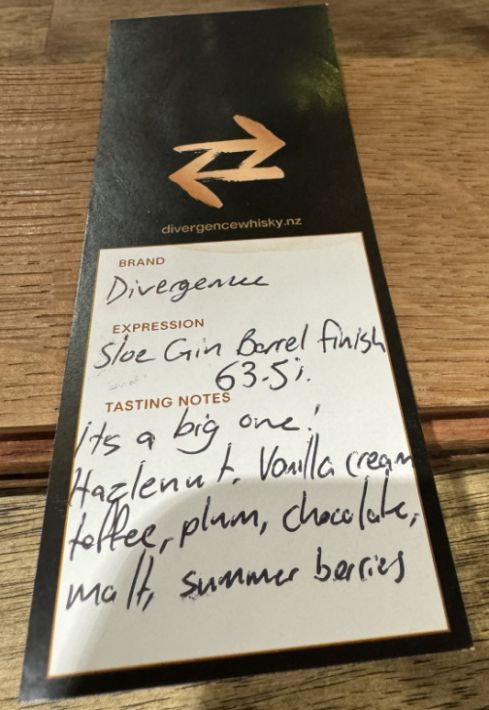 divergencewhisky.nz
BRAND
Divergence
EXPRESSION
Sloe Gin Barrel finish
63.5%.
TASTING NOTES
Its a big one!
Hazlenut, Vanilla cream
toffee, plum, chocolate,
malt, summer berries